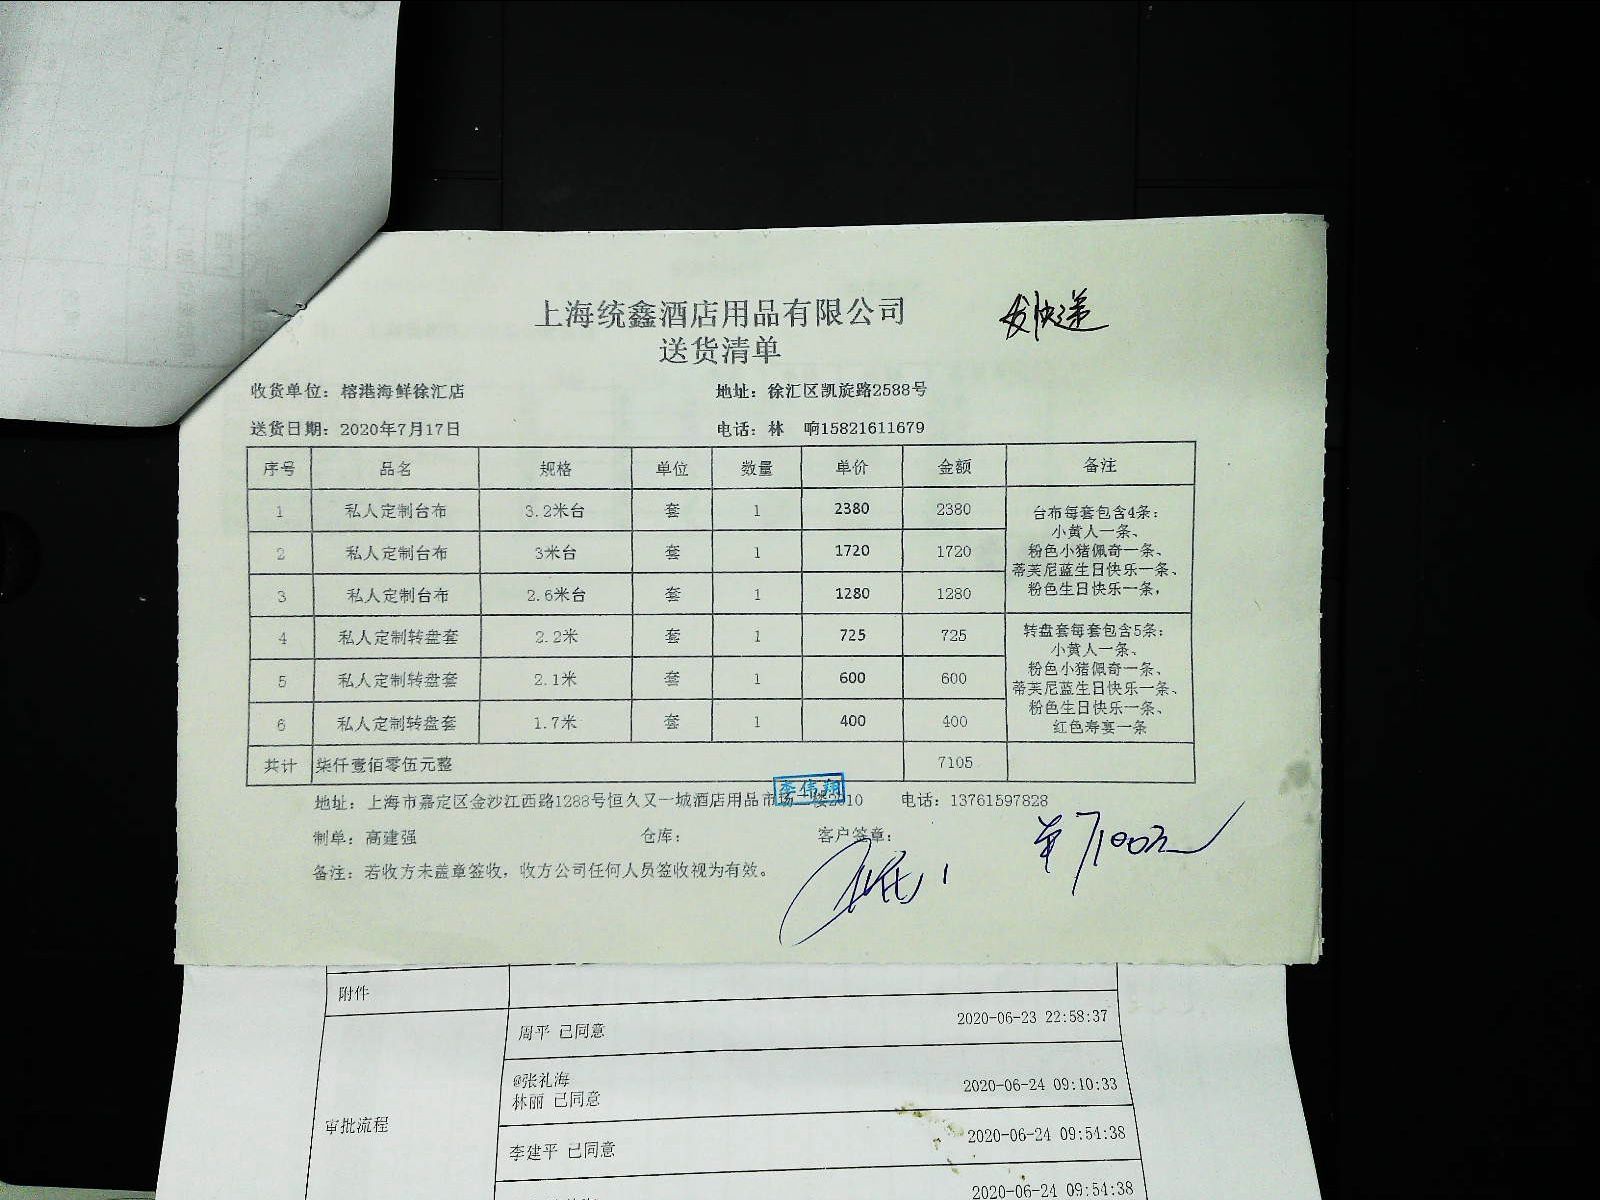 上海统鑫酒店用品有限公司
发快递
送货清单
收货单位：榕港海鲜徐汇店 地址：徐汇区凯旋路2588号
送货日期：2020年7月17日 电话：林 响15821611679
序号 品名 规格 单位 数量 单价 金额 备注
1 私人定制台布 3.2米台 套 1 2380 2380
2 私人定制台布 3米台 套 1 1720 1720
3 私人定制台布 2.6米台 套 1 1280 1280
台布每套包含4条：
小黄人一条、
粉色小猪佩奇一条、
蒂芙尼蓝生日快乐一条、
粉色生日快乐一条，
4 私人定制转盘套 2.2米 套 1 725 725
5 私人定制转盘套 2.1米 套 1 600 600
6 私人定制转盘套 1.7米 套 1 400 400
转盘套每套包含5条：
小黄人一条、
粉色小猪佩奇一条、
蒂芙尼蓝生日快乐一条、
粉色生日快乐一条、
红色寿宴一条
共计 柒仟壹佰零伍元整 7105
李伟翔
地址：上海市嘉定区金沙江西路1288号恒久又一城酒店用品市场一楼2010 电话：13761597828
制单：高建强 仓库： 客户签章：
7100元
备注：若收方未盖章签收，收方公司任何人员签收视为有效。
附件
审批流程
周平 已同意 2020-06-23 22:58:37
@张礼海
林丽 已同意 2020-06-24 09:10:33
李建平 已同意 2020-06-24 09:54:38
2020-06-24 09:54:38